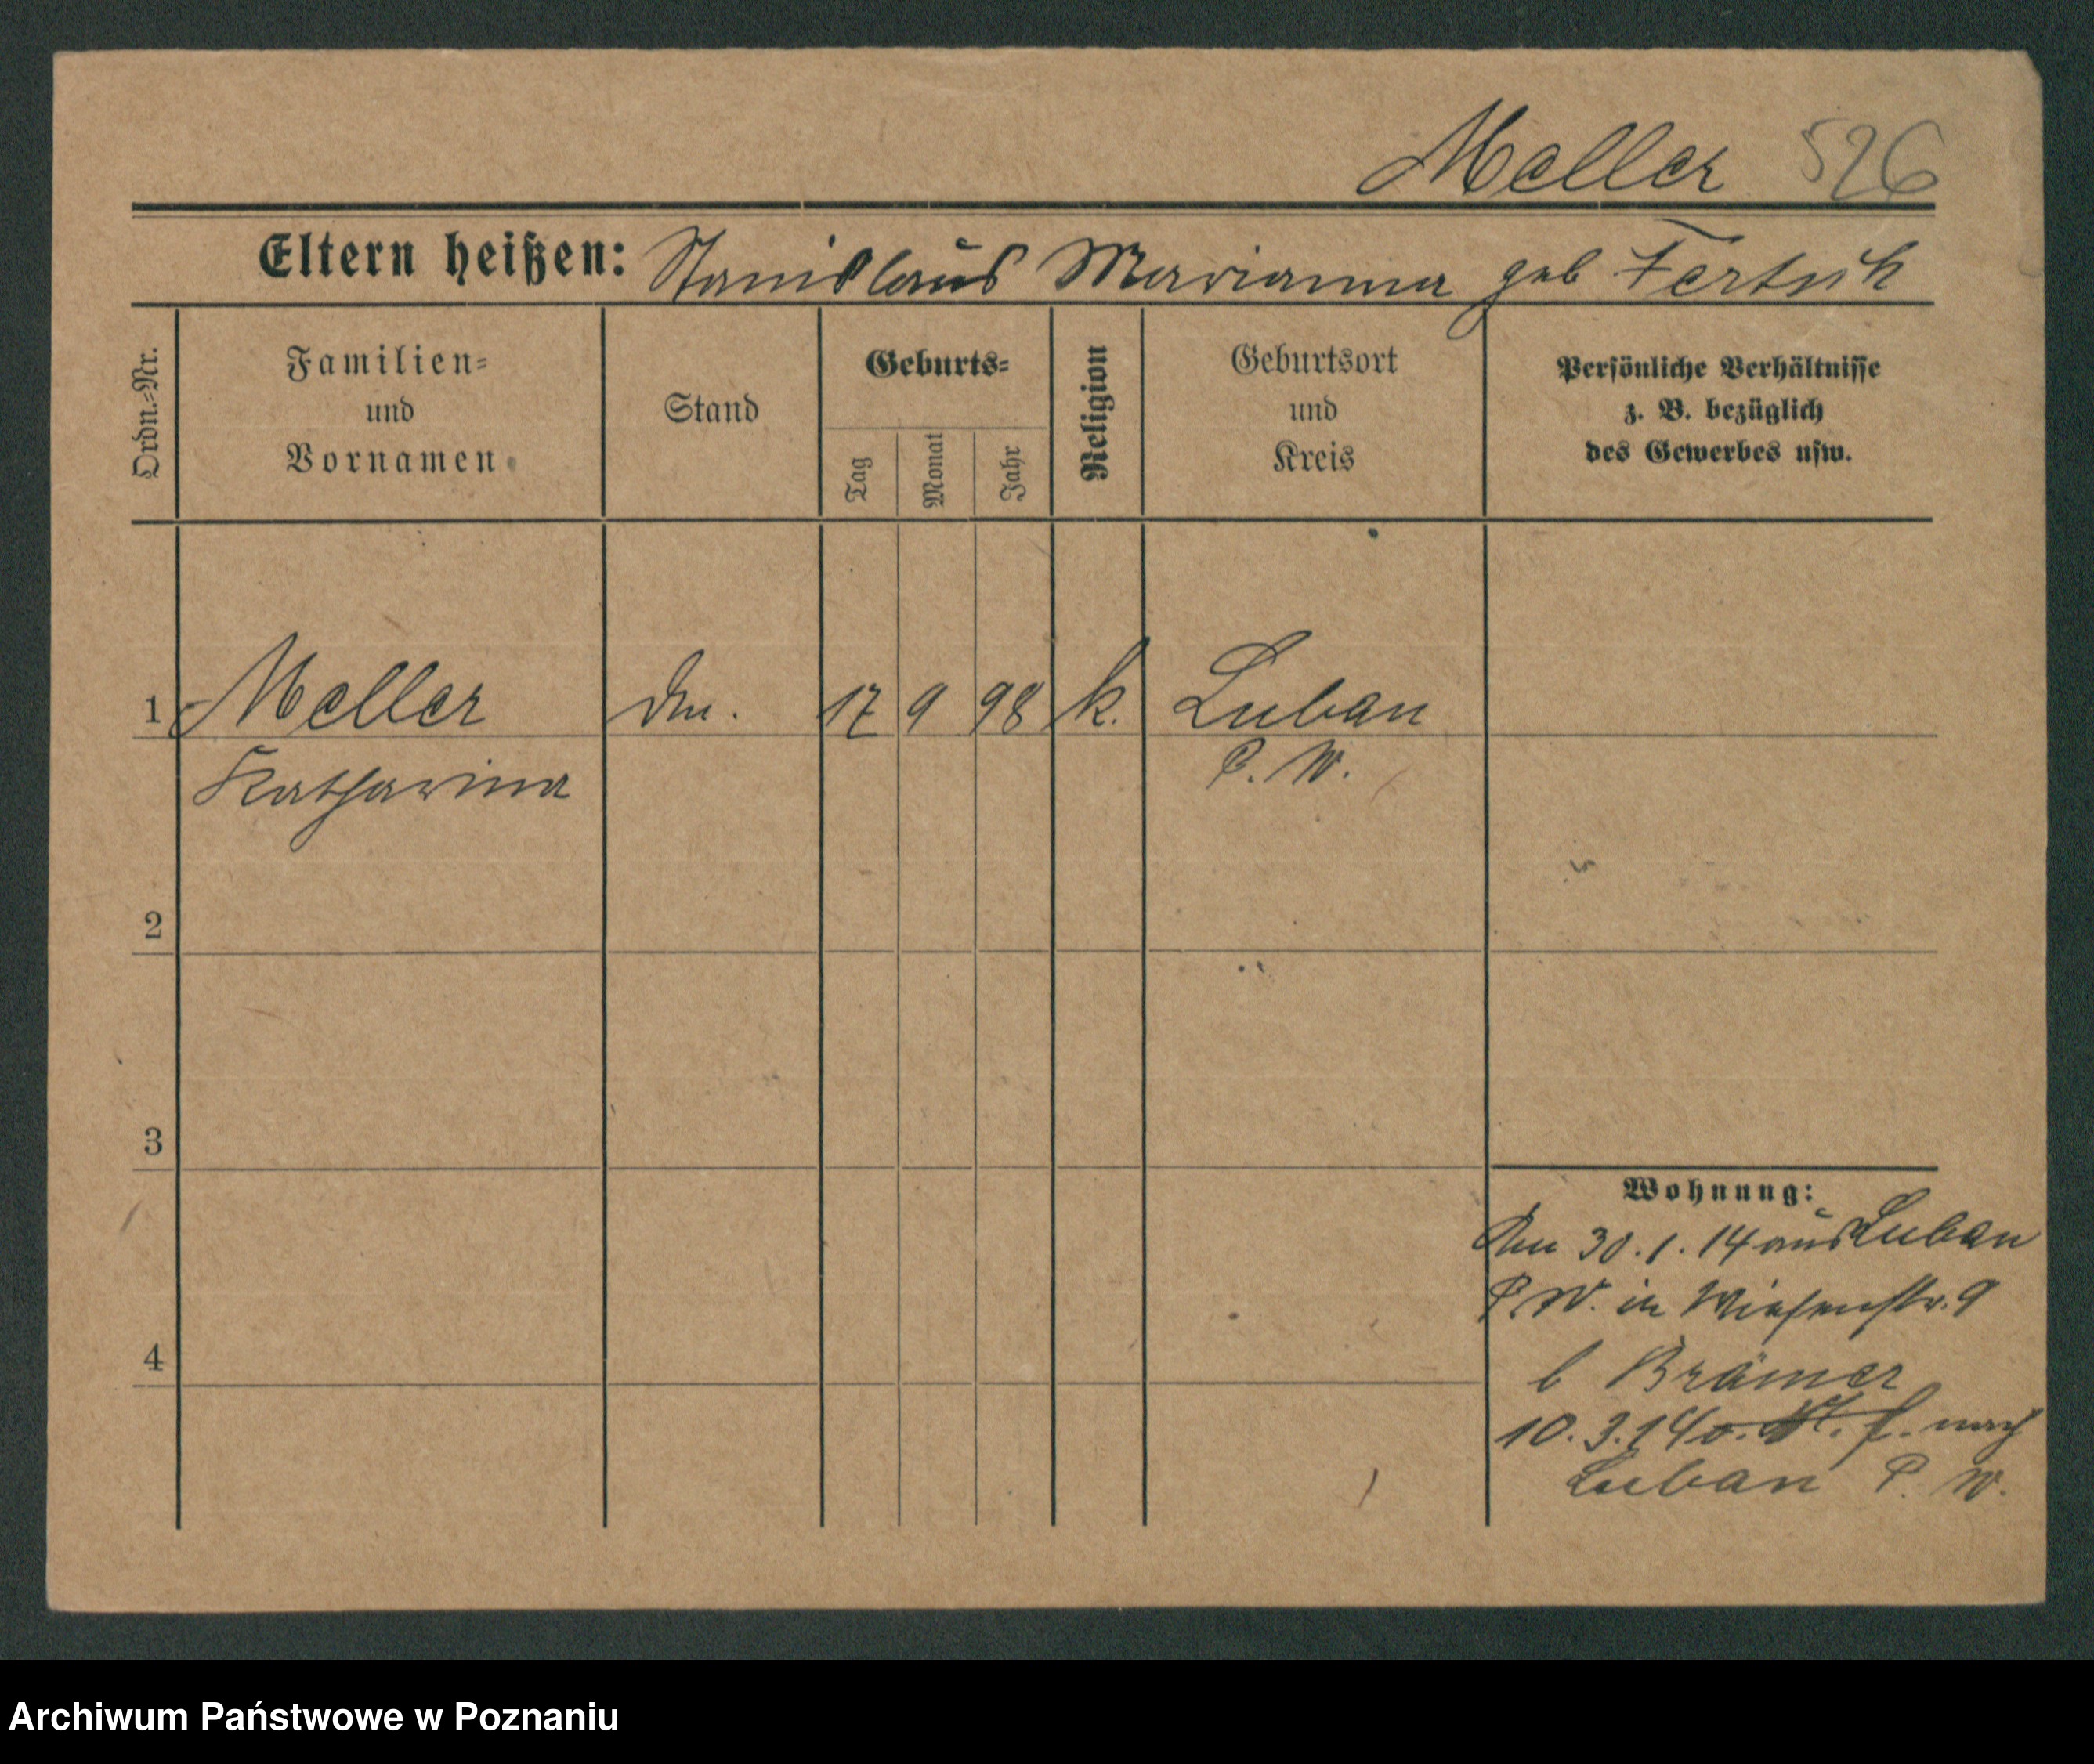 Meller 526
Eltern heißen: Stanislaus Marianna geb Fertsch
Ordn.-Nr.
Familien-
und
Vornamen
Stand
Geburts-
Tag
Monat
Jahr
Religion
Geburtsort
und
Kreis
Persönliche Verhältnisse
z. B. bezüglich
des Gewerbes usw.
1 Meller 17 9 98 k. Luban
Katharina P. W.
2
3
4
Wohnung:
30.1.14 aus Luban
P. W. in Wiesenstr. 9
b Brämer
10.3.14 nach
Luban P. W.
Archiwum Państwowe w Poznaniu